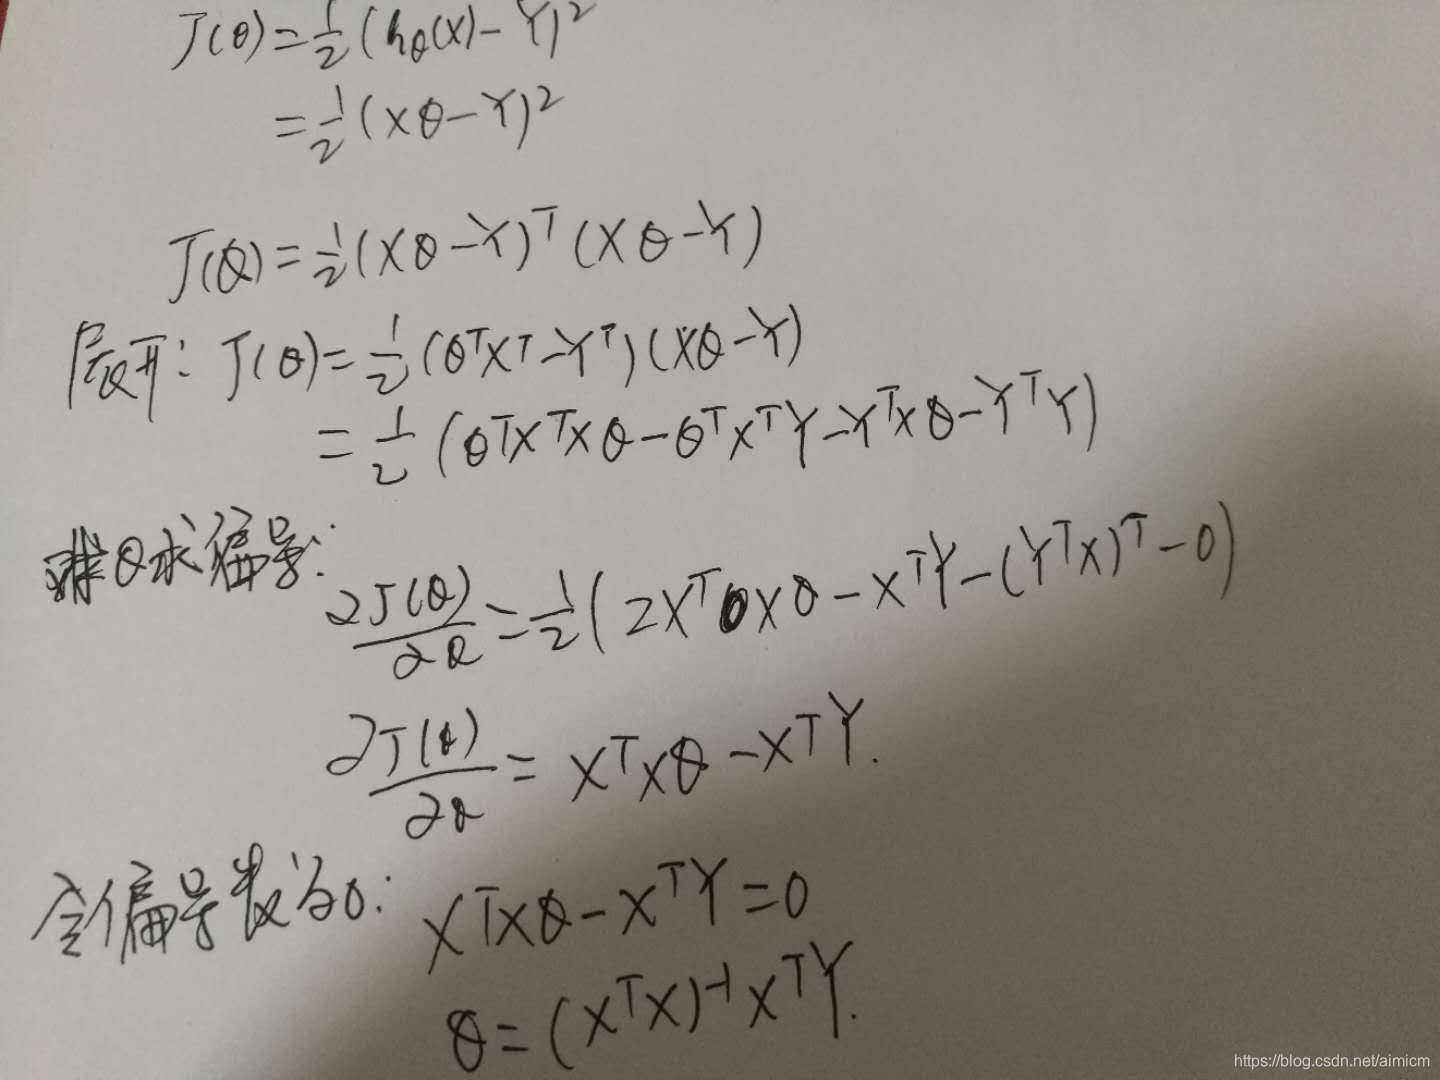 J(θ)=½(hθ(x)-Y)²
=½(Xθ-Y)²
J(θ)=½(Xθ-Y)ᵀ(Xθ-Y)
展开: J(θ)=½(θᵀXᵀ-Yᵀ)(Xθ-Y)
=½(θᵀXᵀXθ-θᵀXᵀY-YᵀXθ-YᵀY)
θ求偏导:
∂J(θ)/∂θ=½(2XᵀXθ-XᵀY-(YᵀX)ᵀ-0)
∂J(θ)/∂θ=XᵀXθ-XᵀY.
令偏导数为0: XᵀXθ-XᵀY=0
θ=(XᵀX)⁻¹XᵀY.
https://blog.csdn.net/aimicm